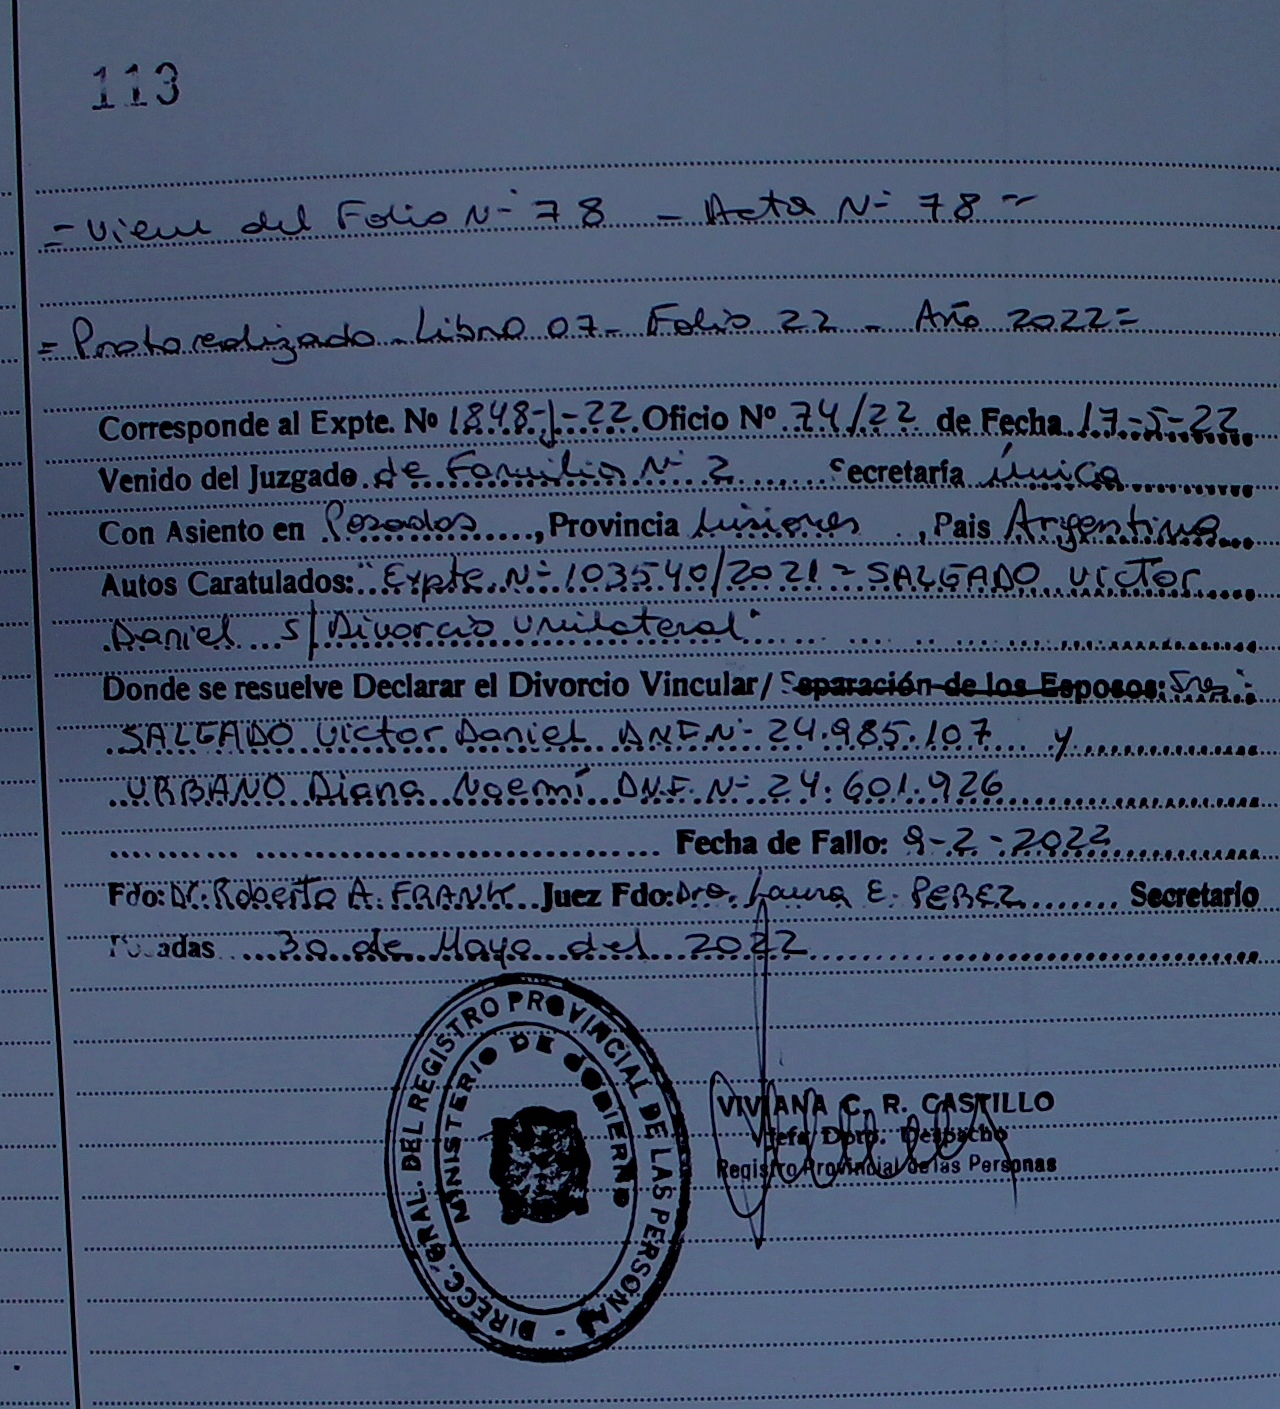 113
= Viene del Folio Nº 78 - Acta Nº 78 =
= Protocolizado - Libro 07 - Folio 22 - Año 2022 =
Corresponde al Expte. Nº 1848-J-22 Oficio Nº 74/22 de Fecha 17-5-22
Venido del Juzgado de Familia Nº 2 Secretaría Única
Con Asiento en Posadas, Provincia Misiones, Pais Argentina
Autos Caratulados: "Expte. Nº 103540/2021 - SALGADO Victor
Daniel s/ Divorcio Unilateral"
Donde se resuelve Declarar el Divorcio Vincular/ Separación de los Esposos: Sres:
SALGADO Victor Daniel D.N.I. Nº 24.985.107 y
URBANO Diana Noemí D.N.I. Nº 24.601.926
Fecha de Fallo: 9-2-2022
Fdo: Dr. Roberto A. FRANK Juez Fdo: Dra. Laura E. PEREZ Secretario
Posadas 30 de Mayo del 2022
DIRECC. GRAL. DEL REGISTRO PROVINCIAL DE LAS PERSONAS -
MINISTERIO DE GOBIERNO
VIVIANA C. R. CASTILLO
Jefa Dpto. Despacho
Registro Provincial de las Personas